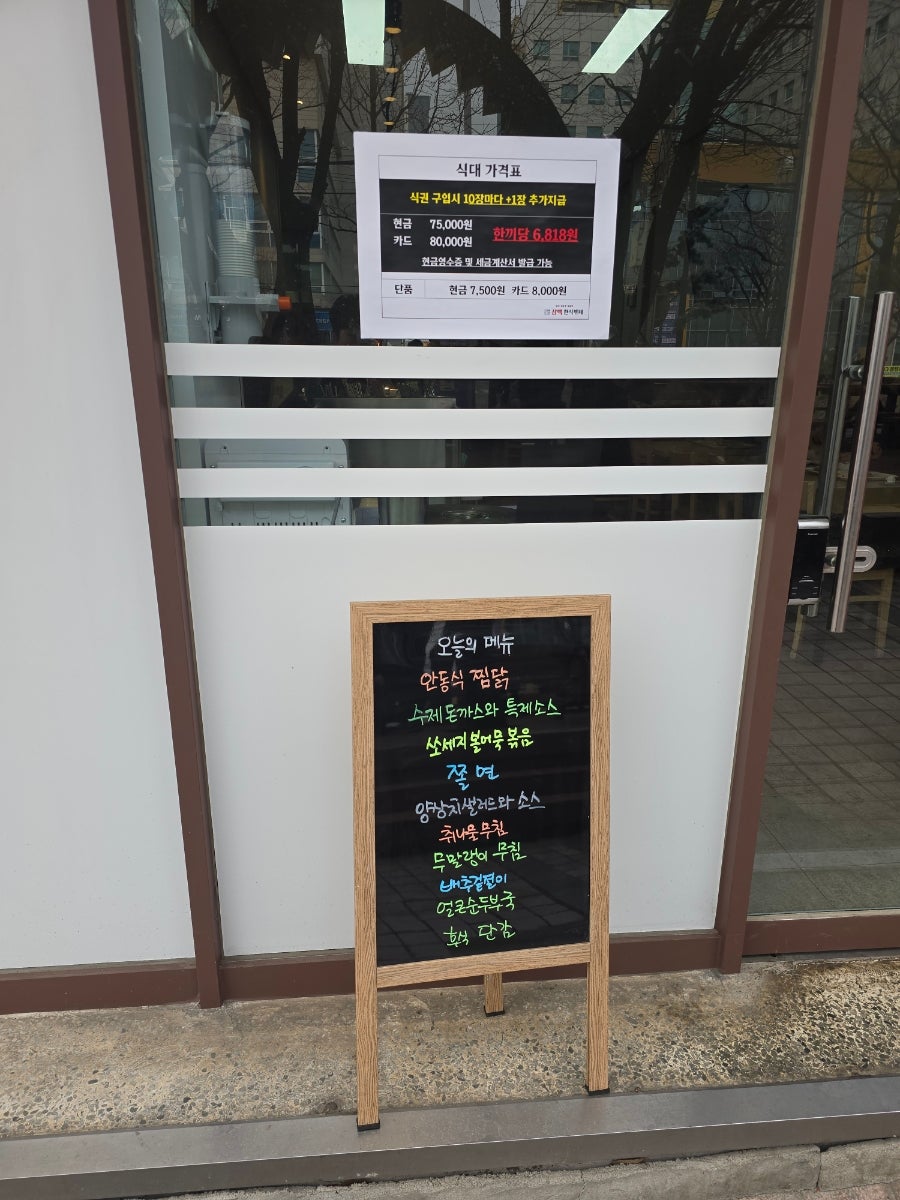 식대 가격표
식권 구입시 10장마다 +1장 추가지급
현금 75,000원
카드 80,000원
한끼당 6,818원
현금영수증 및 세금계산서 발급 가능
단품 현금 7,500원 카드 8,000원
한식뷔페
오늘의 메뉴
안동식 찜닭
수제돈까스와 특제소스
쏘세지볼어묵볶음
쫄면
양상치샐러드와 소스
취나물무침
무말랭이 무침
배추겉절이
얼큰순두부국
후식 단감